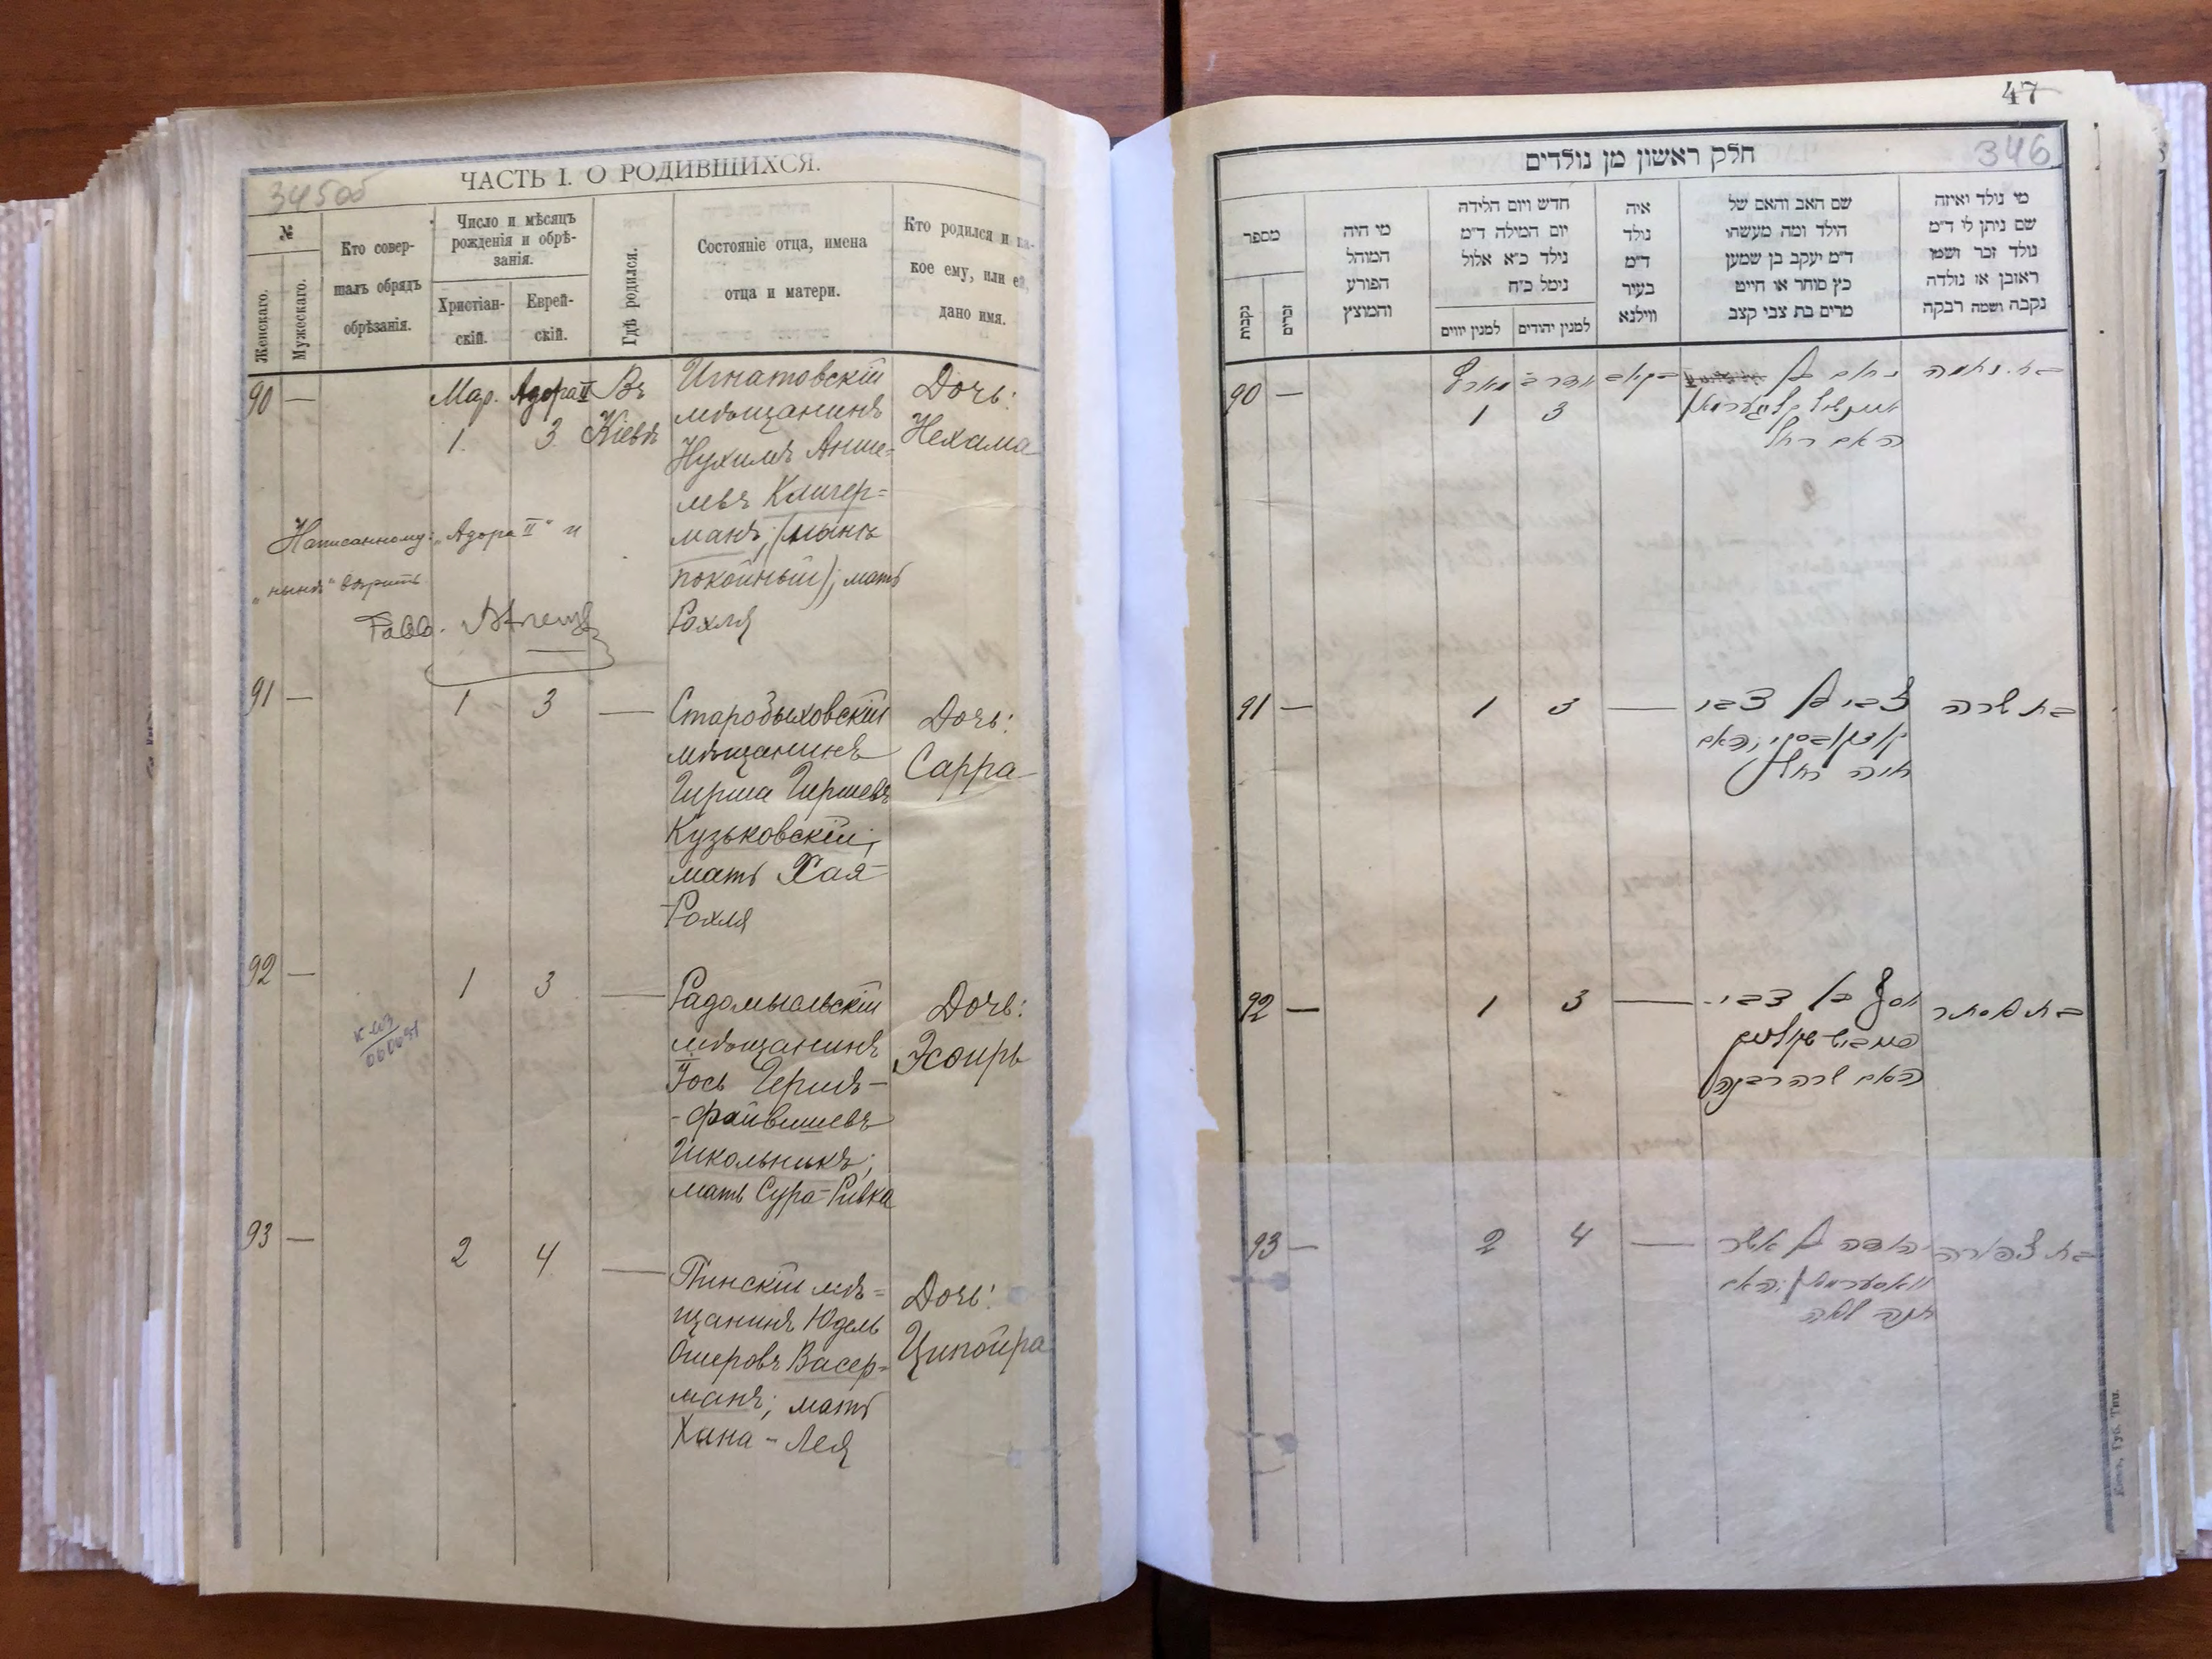 345об
ЧАСТЬ I. О РОДИВШИХСЯ.
№
Женскаго.
Мужескаго.
Кто совер-
шалъ обрядъ
обрѣзанія.
Число и мѣсяцъ
рожденія и обрѣ-
занія.
Христіан-
скій.
Еврей-
скій.
Гдѣ родился.
Состояніе отца, имена
отца и матери.
Кто родился и ка-
кое ему, или ей,
дано имя.
90 —
Мар. Адора II Въ
1. 3 Кіевѣ
Игнатовскій
мѣщанинъ
Нухимъ Анше-
левъ Клигер=
манъ; (нынѣ
покойный); мать
Рохля
Дочь:
Нехама
Написанному: „Адора II" и
„нынѣ" вѣрить
91 — 1 3 —
Старобыховскій
мѣщанинъ
Гирша Гиршевъ
Кузьковскій;
мать Хая-
Рохля
Дочь:
Сарра
92 — 1 3 —
Радомысльскій
мѣщанинъ
Іось Герш-
-Файвишевъ
Школьникъ;
мать Сура-Ривка
Дочь:
Эсѳирь
93 — 2 4 —
Пинскій мѣ=
щанинъ Юдель
Ошеровъ Васер=
манъ; мать
Хана-Лея
Дочь:
Ципойра
47
346
חלק ראשון מן נולדים
מספר
נקבות
זכרים
מי היה
המוהל
הפורע
והמוצץ
חדש ויום הלידה
יום המילה ד״מ
נולד כ״א אלול
נימל כ״ח
למנין יווים
למנין יהודים
איה
נולד
ד״מ
בעיר
ווילנא
שם האב והאם של
הילד ומה מעשהו
ד״מ יעקב בן שמען
כץ סוחר או חייט
מרים בת צבי קצב
מי נולד ואיזה
שם ניתן לו ד״מ
נולד זכר ושמו
ראובן או נולדה
נקבה ושמה רבקה
90 —
1 3
האם רחל
בת נחמה
91 — 1 3 —
צבי בן צבי
האם
חיה רחל
בת שרה
92 — 1 3 —
יוסף בן צבי
האם שרה רבקה
בת אסתר
93 — 2 4 —
יהודה בן אשר
וואסערמאן; האם
חנה לאה
בת צפורה
Киев. Губ. Тип.